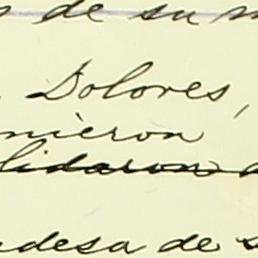 de su
Dolores,
nieron
lidaron
desa de s